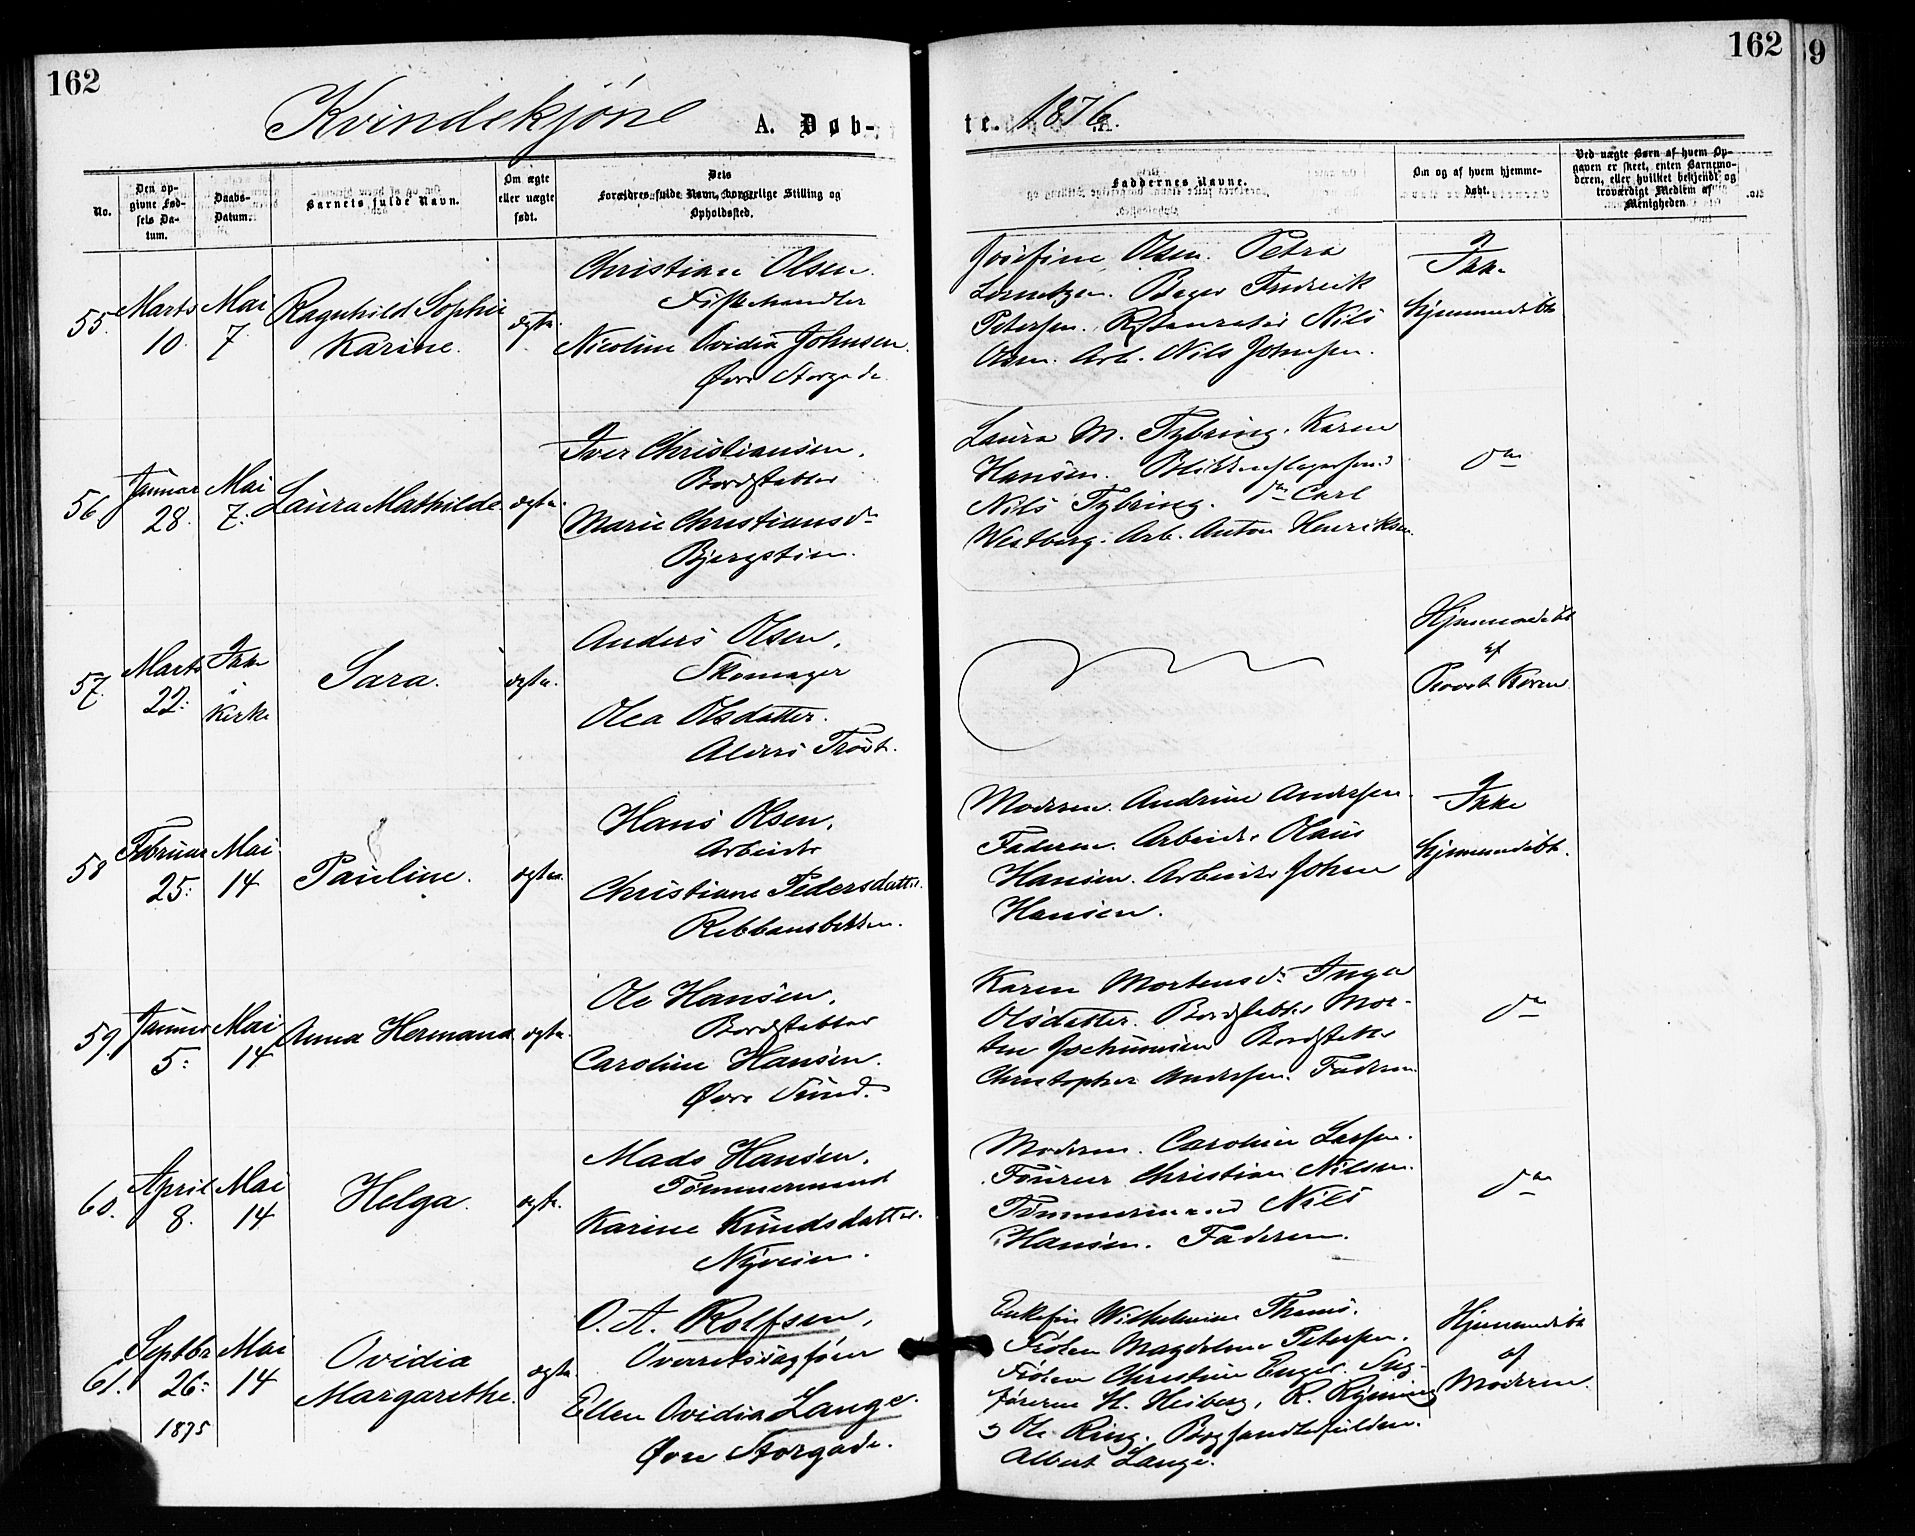 162
Kvindekjøn
A. Døb-
No.
Den op-
givne Fød-
sels Da-
tum.
Daabs-
Datum.
Barnets fulde Navn.
Om ægte
eller uægte
født.
Dets
Forældres fulde Navn, borgerlige Stilling og
Opholdssted.
55.
Marts
10.
Mai
7.
Ragnhild Sophie
Karine.
ægte.
Christian Olsen.
Fiskehandler
Nicoline Ovidia Johnsen.
Øvre Storgade.
56
Januar
28.
Mai
7.
Laura Mathilde
ægte.
Iver Christiansen.
Bordstabler
Marie Christiansdr
Bjergstien.
57.
Marts
22.
Ikke
i
Kirke
Sara.
ægte.
Anders Olsen,
Skomager
Olea Olsdatter.
Alders Trøst.
58
Februar
25.
Mai
14
Pauline.
ægte.
Hans Olsen.
Arbeider
Christiane Pedersdatter.
Rebbansbakken.
59.
Januar
5.
Mai
14
Anna Hermana
ægte.
Ole Hansen.
Bordstabler
Caroline Hansen.
Øvre Sund.
60.
April
8.
Mai
14
Helga.
ægte.
Mads Hansen.
Tømmermand
Karine Knudsdatter.
Nyveien.
61.
Septbr
26.
1875
Mai
14
Ovidia
Margarethe.
ægte
O. A. Rolfsen,
Overretssagfører
Ellen Ovidia Lange.
Øvre Storgade.
162
9
te. 1876.
Faddernes Navne.
Om og af hvem hjemme-
døbt.
Ved uægte Børn af hvem Op-
gaven er skeet, enten Barnemo-
deren, eller hvilket bekjendt og
troværdigt Medlem af
Menigheden
Josefine Olsen. Petra
Lorentzen. Bager Fredrik
Petersen. Restauratør Nils
Olsen. Arb. Nils Johnsen.
Ikke
hjemmedøbt
Laura M. Tybring. Karen
Hansen. Blikkenslagersvend
Nils Tybring. do Carl
Westberg. Arb. Anton Henriksen.
do
Hjemmedøbt
af
Provst Koren
Moderen. Andrine Andersen.
Faderen. Arbeider Olaus
Hansen. Arbeider Johan
Hansen.
Ikke
hjemmedøbt.
Karen Mortensdr Inga
Olsdatter. Bordstabler Mor-
ten Jochumsen Bordstabler
Christopher Andersen. Faderen
do
Moderen. Caroline Larsen.
Fourer Christian Nilsen.
Tømmermand Nils
Hansen. Faderen.
do
Enkefru Wilhelmine Thams.
Frøken Magdalene Petersen.
Frøken Christine Enger. Sag-
førerne H. Heiberg, R. Rynning
& Ole Ring. Boghandlerfuldm.
Albert Lange.
Hjemmedøbt
af
Moderen.